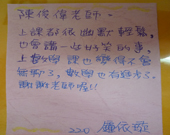 陳俊偉老師：
上課都很幽默輕鬆，
也會講一些好笑的事，
上數學課也變得不會
無聊了，數學也有進步了。
謝謝老師喔!!
220 鍾依璇